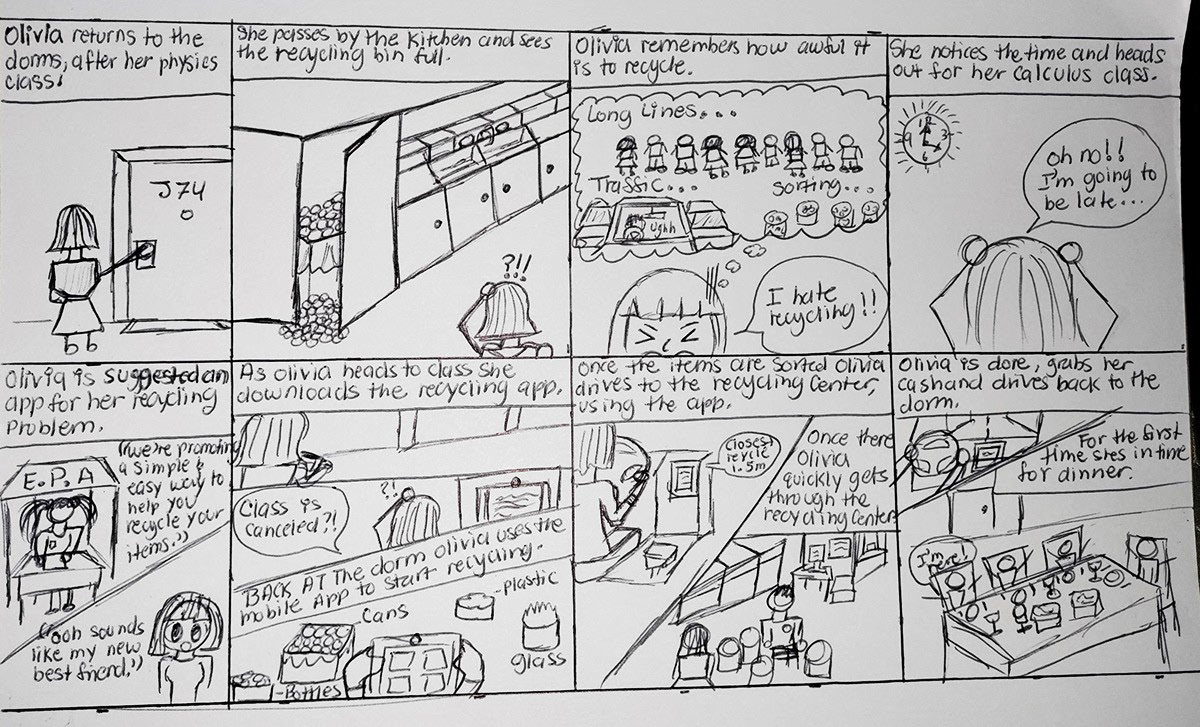 Olivia returns to the
dorms, after her physics
class.
J74
She passes by the kitchen and sees
the recycling bin full.
?!!
Olivia remembers how awful it
is to recycle.
Long Lines...
Traffic...
Sorting...
Ughh
I hate
recycling!!
She notices the time and heads
out for her calculus class.
12
3
6
9
oh no!!
I'm going to
be late...
Olivia is suggested an
app for her recycling
problem.
E.P.A
"we're promoting
a simple &
easy way to
help you
recycle your
items."
"ooh sounds
like my new
best friend."
As Olivia heads to class she
downloads the recycling app.
Class is
canceled?!
?!
BACK AT The dorm Olivia uses the
mobile App to start recycling.
Cans
-plastic
glass
-Bottles
Once the items are sorted Olivia
drives to the recycling center,
using the app.
Closest
1.5m
Once there
Olivia
quickly gets
through the
recycling center
Olivia is done, grabs her
cash and drives back to the
dorm.
For the first
time shes in time
for dinner.
I'm here!